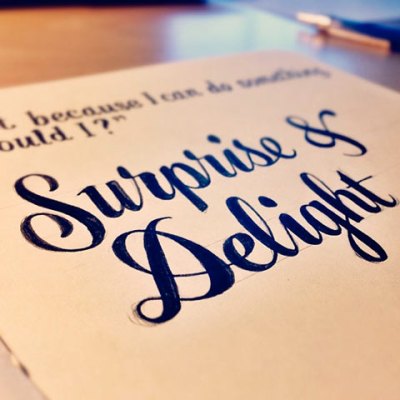 t because I can do something
ould I?"
Surprise &
Delight